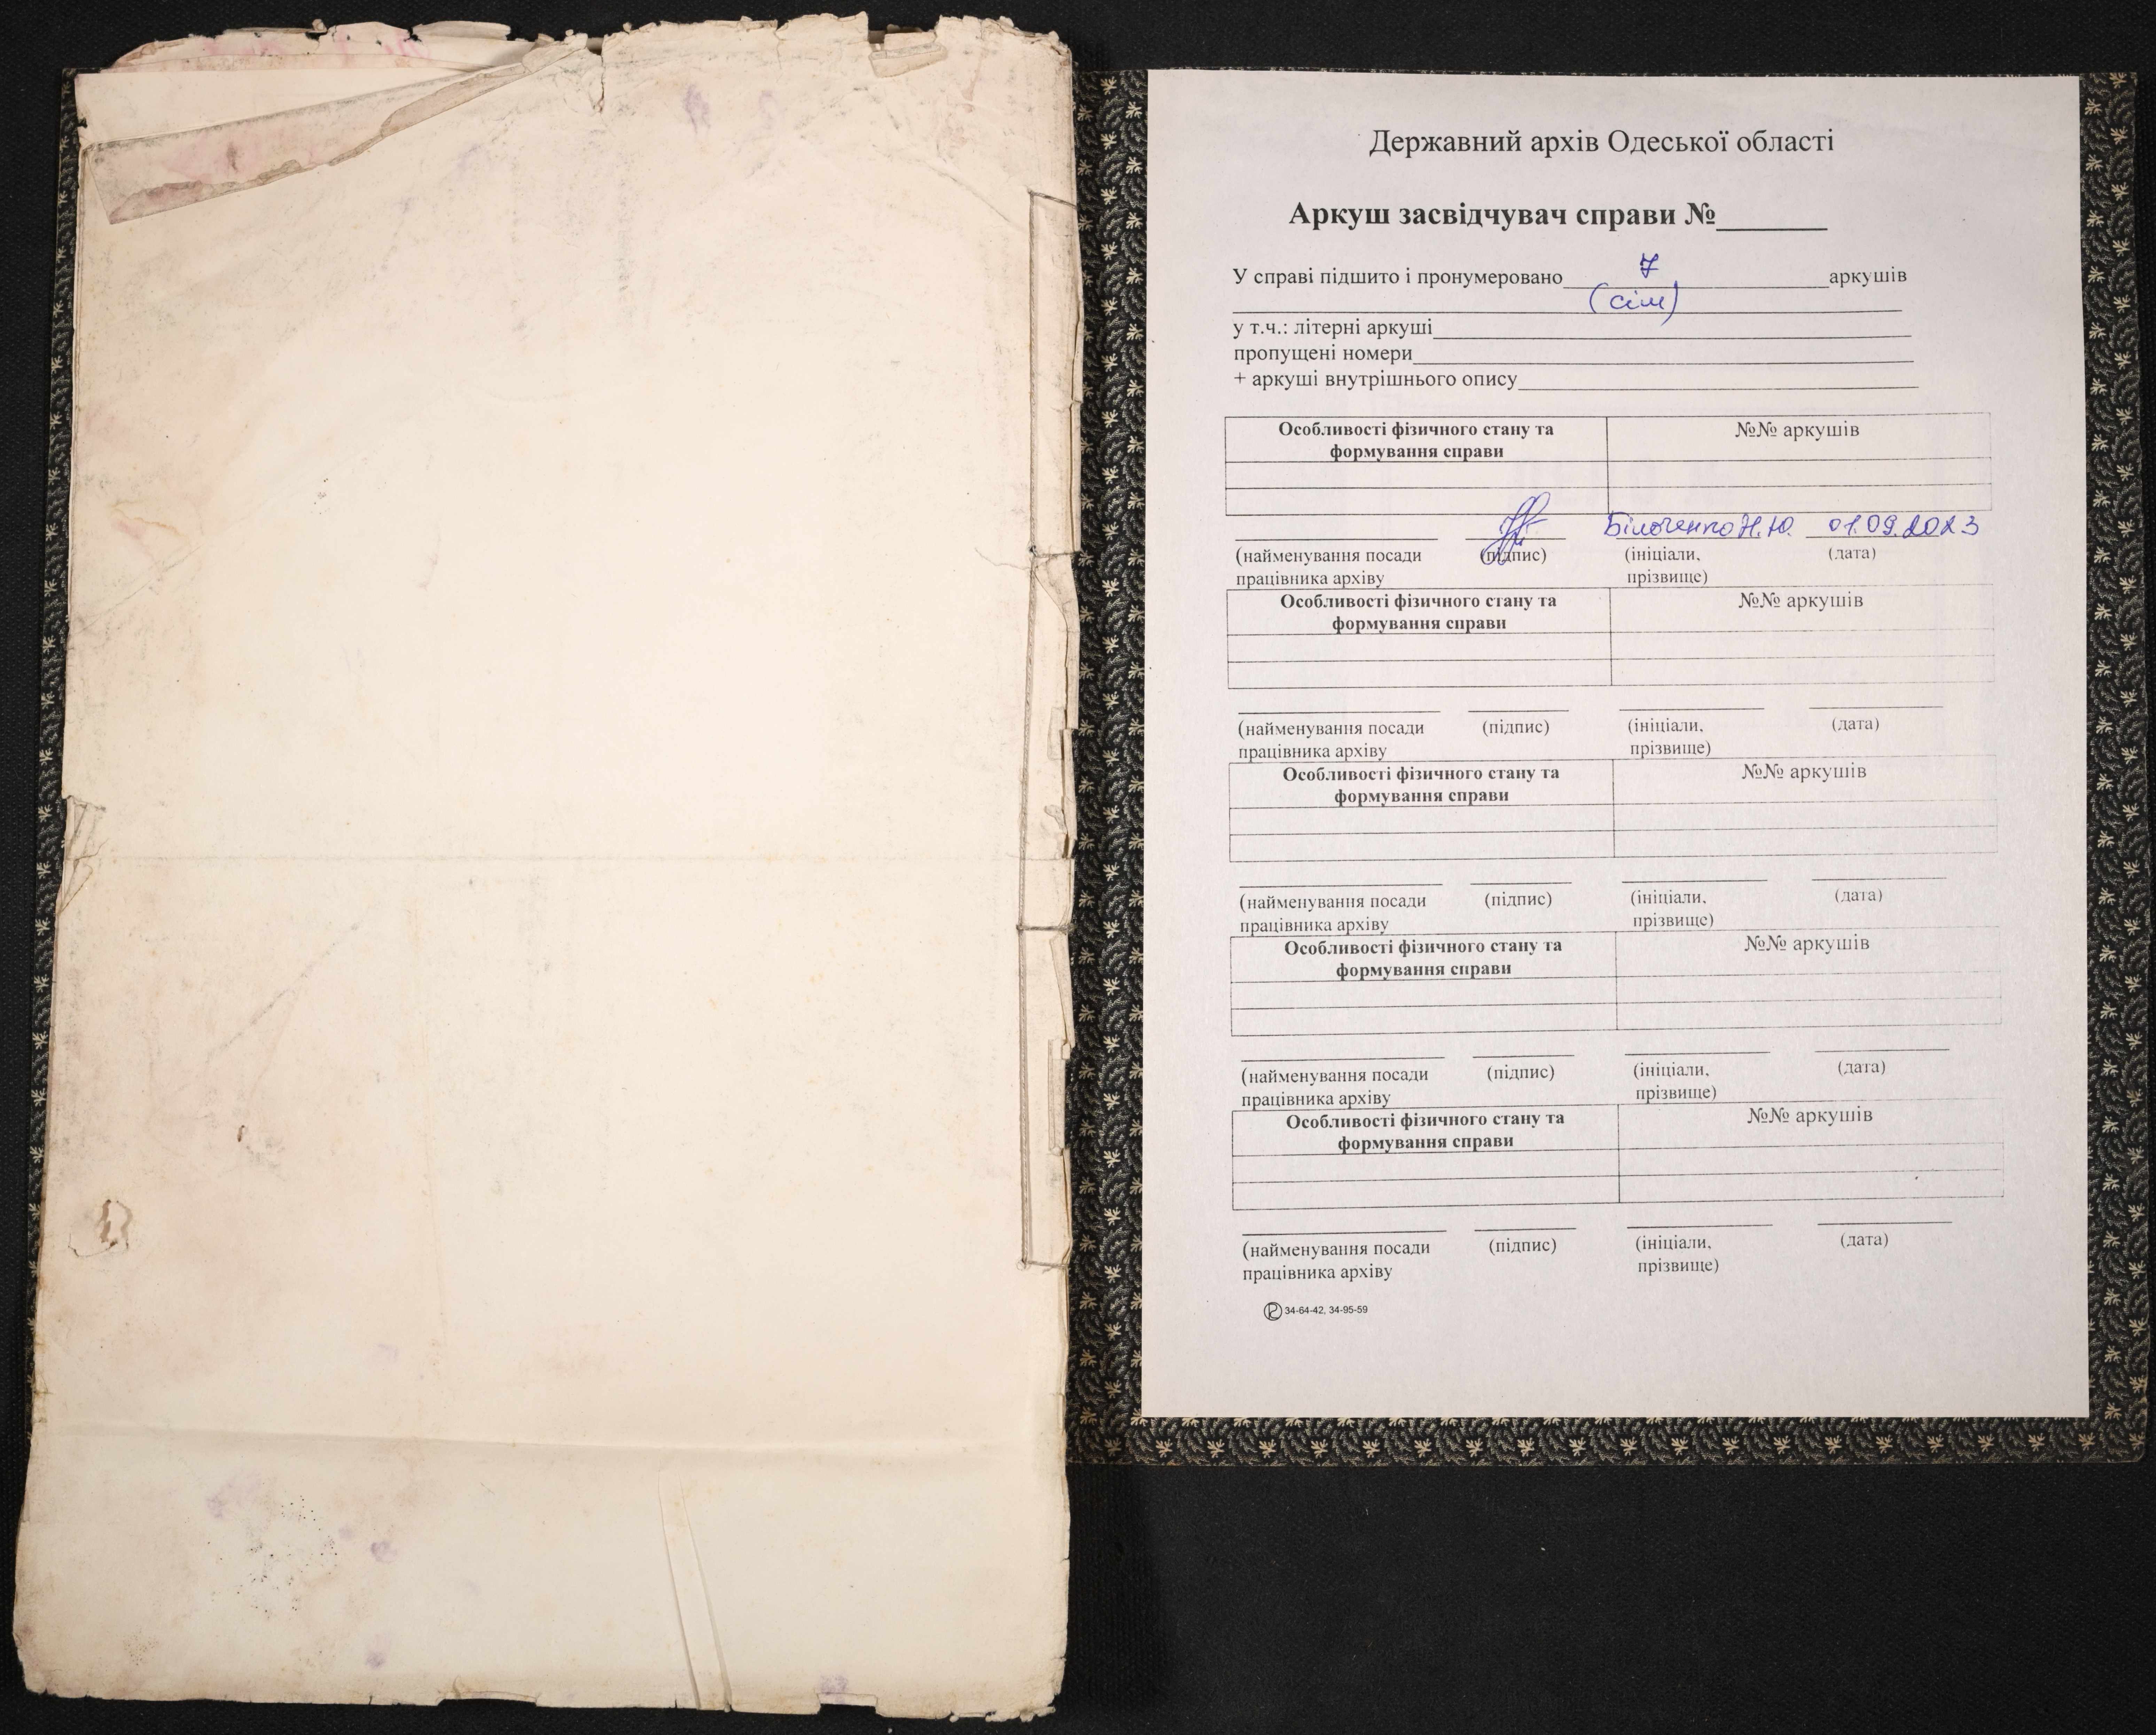 Державний архів Одеської області
Аркуш засвідчувач справи №______
У справі підшито і пронумеровано 7 аркушів
(сім)
у т.ч.: літерні аркуші
пропущені номери
+ аркуші внутрішнього опису
Особливості фізичного стану та №№ аркушів
формування справи
Н.Ю. 01.09.2023
(найменування посади (підпис) (ініціали, (дата)
працівника архіву прізвище)
Особливості фізичного стану та №№ аркушів
формування справи
(найменування посади (підпис) (ініціали, (дата)
працівника архіву прізвище)
Особливості фізичного стану та №№ аркушів
формування справи
(найменування посади (підпис) (ініціали, (дата)
працівника архіву прізвище)
Особливості фізичного стану та №№ аркушів
формування справи
(найменування посади (підпис) (ініціали, (дата)
працівника архіву прізвище)
Особливості фізичного стану та №№ аркушів
формування справи
(найменування посади (підпис) (ініціали, (дата)
працівника архіву прізвище)
34-64-42, 34-95-59